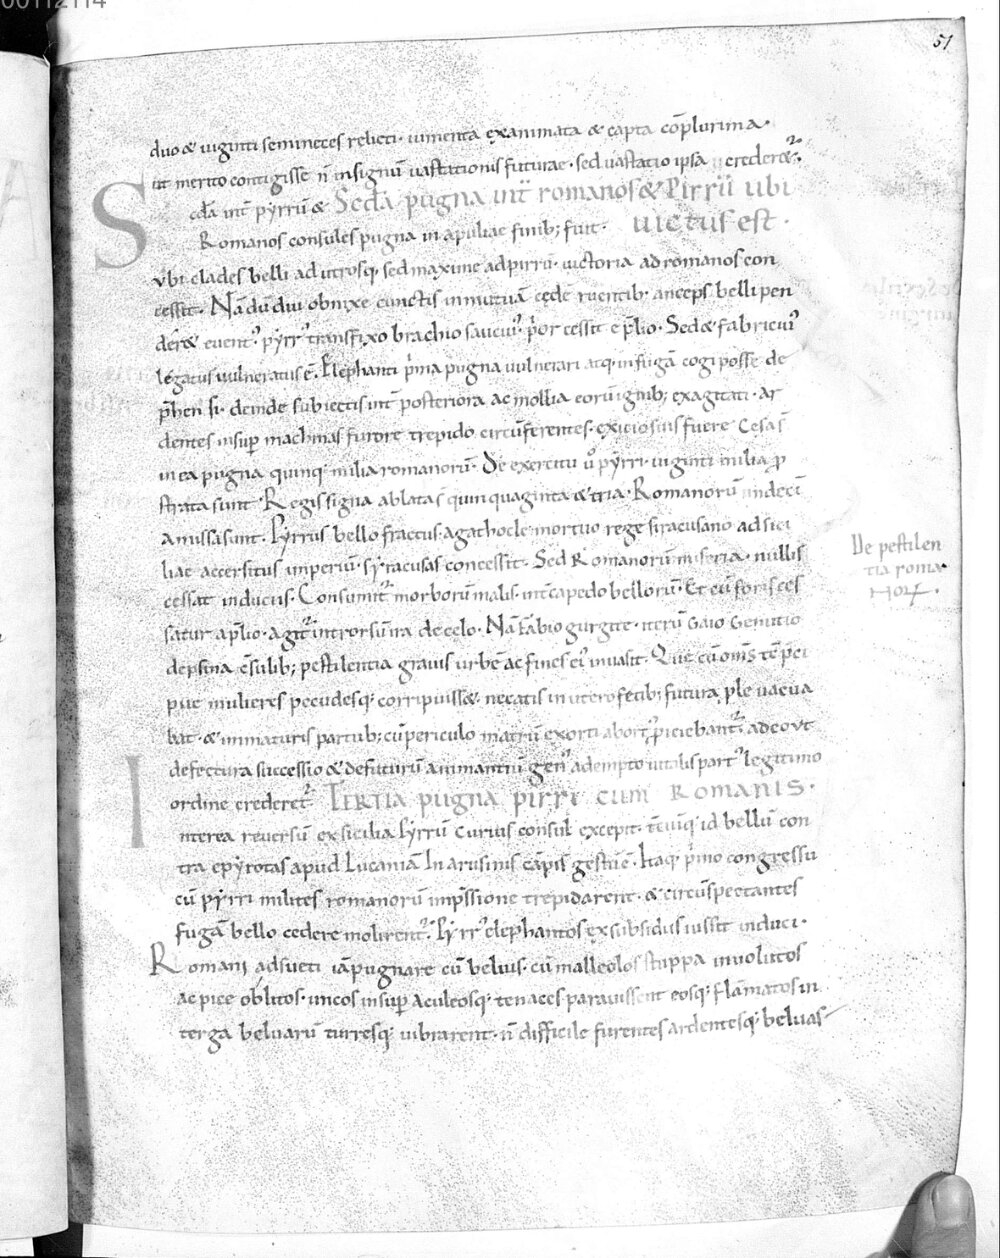 00112114
51
duo & uiginti semineces relicti · iumenta exanimata & capta cōplurima ·
ut merito contigisse n̄ insignū uastationis futurae · sed uastatio ipsa crederet̃.
Scda int̃ pyrrū & Scda pugna int̃ romanos & Pirrū ubi
Romanos consules pugna in apuliae finib; fuit · uictus est ·
vbi clades belli ad utrosq; sed maxime ad pirrū · uictoria ad romanos con
cessit · Nā dū diu obnixe cunctis in mutuā cędē ruentib; anceps belli pen
der& euent᾽ · pyrr᾽ transfixo brachio sauciu᾽ · p̃or cessit e p̄lio · Sed & fabriciu᾽
legatus uulneratus ē · Elephanti p̃ma pugna uulnerari atq; in fugā cogi posse de
p̄hensi · deinde subiectis int̃ posteriora ac mollia eorū ignib; exagitati · ar
dentes insup machinas furore trepido circūferentes · exicio suis fuere Cesa s̄
in ea pugna quinq; milia romanorū · De exercitu u᾽ pyrri · uiginti milia p
strata sunt · Regis signa ablata s̄ quinquaginta & tria · Romanorū undeci
amissa sunt · Pyrrus bello fractus · agathocle mortuo rege siracusano ad sici
liae accersitus imperiū · syracusas concessit · Sed Romanorū miseria · nullis
cessat inducus · Consumit᾽ morborū malis · int̃capedo bellorū · Et cū foris ces
satur a p̄lio · agit᾽ introrsū ira de celo · Nā fabio gurgite · iterū Gaio Genutio
depsina c̄sulib; pestilentia grauis urbē ac fines ei᾽ inuasit · Quę cū om̄s tē pci
pue mulieres pecudesq; corripuiss& · necatis in utero fetib; futura ple uacua
bat · & immaturis partub; cū periculo matrū exorti abort᾽ piciebant᾽ · adeo vt
defectura successio & defuturū animantiū gen᾽ adempto uitalis part᾽ legitimo
ordine crederet᾽ · TERTIA pugna pirri cum ROMANIS ·
Interea reuersū ex sicilia Pyrrū Curius consul excepit · tēuiq; id bellū con
tra epyrotas apud Lucaniā In arusinis cāpis gestū ē · Itaq; p̃mo congressu
cū pyrri milites romanorū imp̄ssione trepidarent · & circūspectantes
fugā bello cedere molirent᾽ · Pyrr᾽ elephantos ex subsidiis iussit induci ·
Romani adsueti iā pugnare cū beluis · cū malleolos stuppa inuolutos
ac pice oblitos · uncos insup aculeosq; tenaces parauissent eosq; flāmatos in
terga beluarū turresq; uibrarent · n̄ difficile furentes ardentesq; beluas
De pestilen
tia roma
noꝝ ·